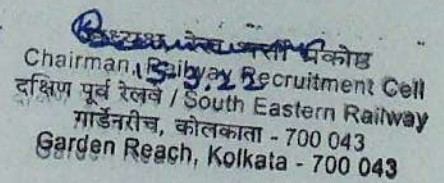 अध्यक्ष रेल भर्ती प्रकोष्ठ
15.3.22
Chairman, Railway Recruitment Cell
दक्षिण पूर्व रेलवे / South Eastern Railway
गार्डेनरीच, कोलकाता - 700 043
Garden Reach, Kolkata - 700 043